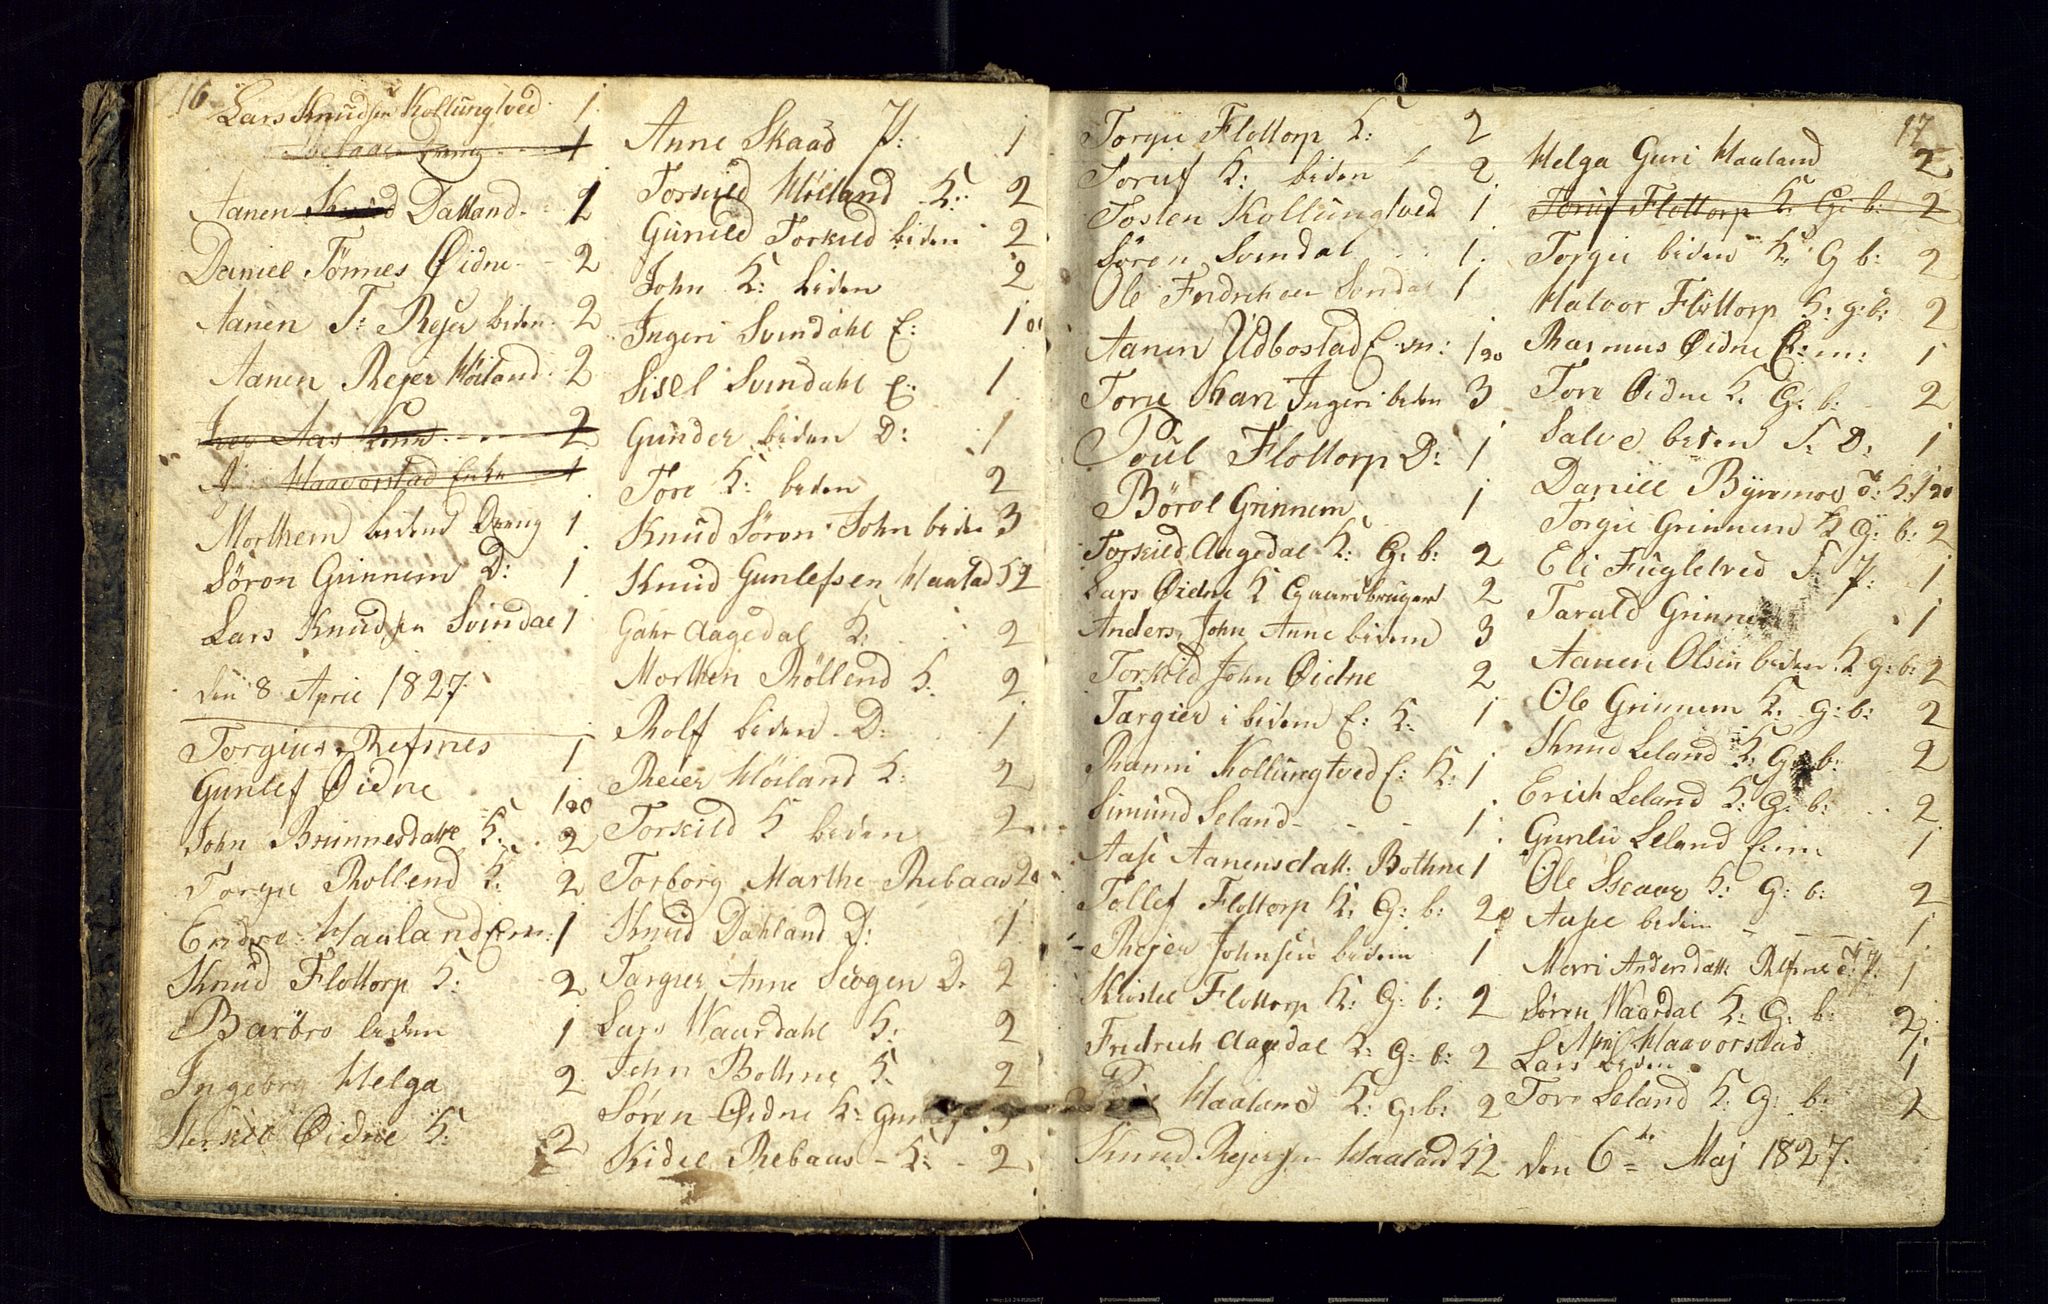 16
Lars Knudsen Kollungtved 1
1
Aanen Dalland 2
Daniel Tønnes Øidne 2
Aanen T: Rejer biden 2
Aanen Rejer Höiland 2
Iver Aas 2
Haavorstad Enke 1
Morthem bidend Dreng 1
Sören Grinnem D: 1
Lars Knudsen Svindal 1
den 8 April 1827
Torgius Refsnes 1
Gunlef Øidne 1 20
John Brunnesdatt K: 2
Torgie Rollend K: 2
Endre Haaland E:m: 1
Knud Flottorp K: 2
Barbro bidem 1
Ingeborg Helga 2
Øidne K: 2
Anne Skaad P: 1
Torkild Höiland K: 2
Gunild Torkild biden 2
John K: biden 2
Ingeri Svindahl E: 1
Sisel Svindahl E: 1
Gunder biden D: 1
Tore K: biden 2
Knud Sören John biden 3
Knud Gunlefsen Haalad K 2
Gahr Aagedal K: 2
Morthen Röllend K: 2
Rolf biden D: 1
Reier Höiland K: 2
Torkild K biden 2
Torborg Marthe Rebaas 2
Knud Dahland D: 1
Targier Anne Scogen D. 2
Lars Waardahl K: 2
John Bothne K: 2
Sören Øidne K:
Kidel Rebaas K: 2
Torgie Flottorp K: 2
Toruf K: biden 2
Tosten Kollungtved 1
Sören Svindal 1
Ole Fridrichsen Svindal 1
Aanen Udbostad E:m: 1 20
Torie Kari Ingeri biden 3
Poul Flottorp D: 1
Börol Grinnem 1
Torkild Aagedal K: G: b: 2
Lars Øidne K Gaardbruger 2
Anders John Anne bidem 3
Torkild John Øidne 2
Targier i bidem E: K: 1
Ranni Kollungtved E: K: 1
Simund Seland 1
Aase Aanensdatt: Bothne 1
Tollef Flottorp K: G: b: 2
Rejer Johnsen bidem 1
Kristel Flottorp K: G: b: 2
Fridrich Aagedal K: G: b: 2
Haaland K: G: b: 2
Knud Rejersen Haaland K 2
17
Helga Guri Haaland 2
Toruf Flottorp K: G: b: 2
Torgie biden K: G b: 2
Halvor Flottorp K: g: b: 2
Rasmus Øidne E: m: 1
Tore Øidne K: G: b: 2
Salve biden T: D: 1
Daniel Byremoe 1 20
Torgie Grinnem K G: b: 2
Eli Fugletved T: P: 1
Tarald Grinnem 1
Aanen Olsen biden K g: b: 2
Ole Grinnem K: G: b: 2
Knud Leland K: G: b: 2
Erich Leland K: G: b: 2
Gunlev Leland E: m 1
Ole Scaar K: G: b: 2
Aase bidem 1
Merri Andersdatt 1
Sören Waardal K: G: b: 2
Haavorstad
Lars biden 1
Tore Leland K: G: b: 2
den 6te Maj 1827.